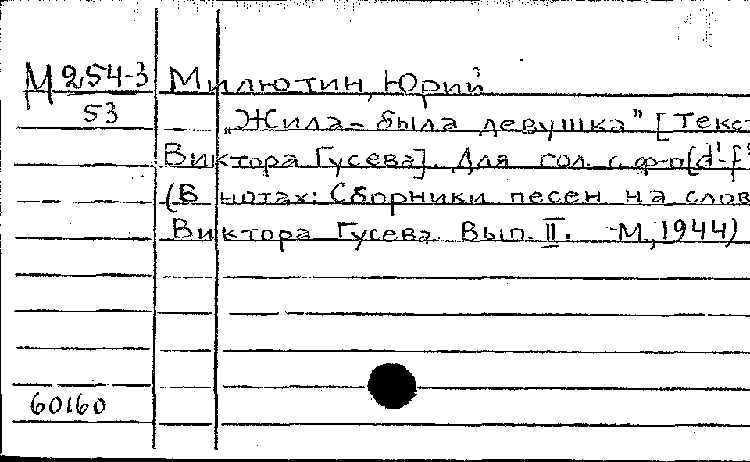 М 254-3 Милютин, Юрий
53 „Жила-была девушка" [Текс
Виктора Гусева]. Для гол. с ф-п [d¹-f²
(В нотах: Сборники песен на слов
Виктора Гусева. Вып. II. -М., 1944)
60160